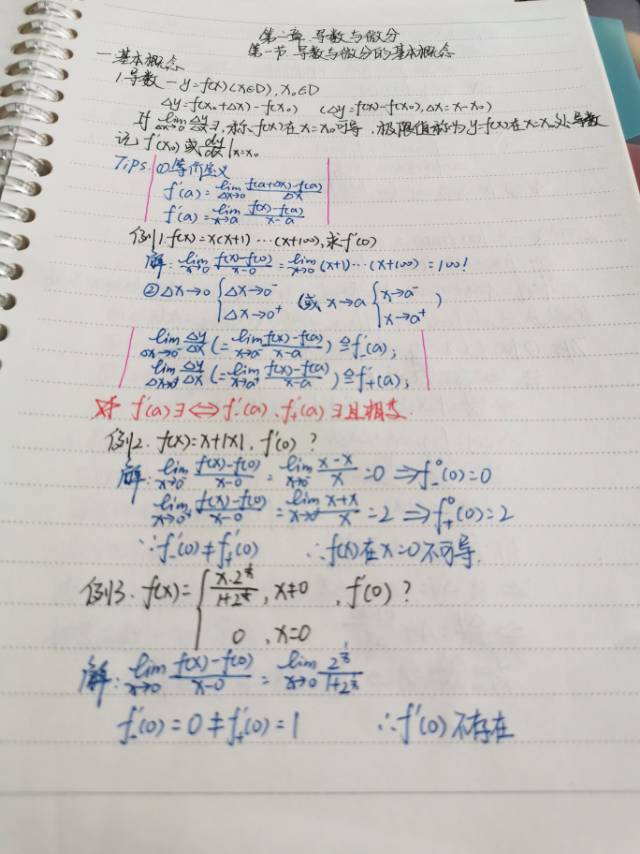 第二章 导数与微分
第一节 导数与微分的基本概念
一.基本概念
1.导数 — y=f(x)(x∈D), x₀∈D
△y=f(x₀+△x)-f(x₀) (△y=f(x)-f(x₀), △x=x-x₀)
If lim_{△x→0} △y/△x ∃, 称f(x)在x=x₀可导, 极限值称为y=f(x)在x=x₀处导数
记 f'(x₀) 或 dy/dx|x=x₀
Tips: ①等价定义
f'(a)=lim_{△x→0} (f(a+△x)-f(a))/△x
f'(a)=lim_{x→a} (f(x)-f(a))/(x-a)
例1. f(x)=x(x+1)···(x+100), 求f'(0)
解: lim_{x→0} (f(x)-f(0))/(x-0) = lim_{x→0} (x+1)···(x+100) = 100!
②△x→0 { △x→0⁻ △x→0⁺ (或 x→a { x→a⁻ x→a⁺ )
lim_{△x→0⁻} △y/△x (= lim_{x→a⁻} (f(x)-f(a))/(x-a)) ≙ f'₋(a);
lim_{△x→0⁺} △y/△x (= lim_{x→a⁺} (f(x)-f(a))/(x-a)) ≙ f'₊(a);
f'(a)∃ ⇔ f'₋(a), f'₊(a) ∃且相等.
例2. f(x)=x+|x|, f'(0)?
解: lim_{x→0⁻} (f(x)-f(0))/(x-0) = lim_{x→0⁻} (x-x)/x = 0 ⇒ f'₋(0)=0
lim_{x→0⁺} (f(x)-f(0))/(x-0) = lim_{x→0⁺} (x+x)/x = 2 ⇒ f'₊(0)=2
∵f'₋(0)≠f'₊(0) ∴f(x)在x=0不可导.
例3. f(x)= { x·2^{1/x}/(1+2^{1/x}), x≠0 , f'(0)?
0, x=0
解: lim_{x→0} (f(x)-f(0))/(x-0) = lim_{x→0} 2^{1/x}/(1+2^{1/x})
f'₋(0)=0≠f'₊(0)=1 ∴f'(0)不存在